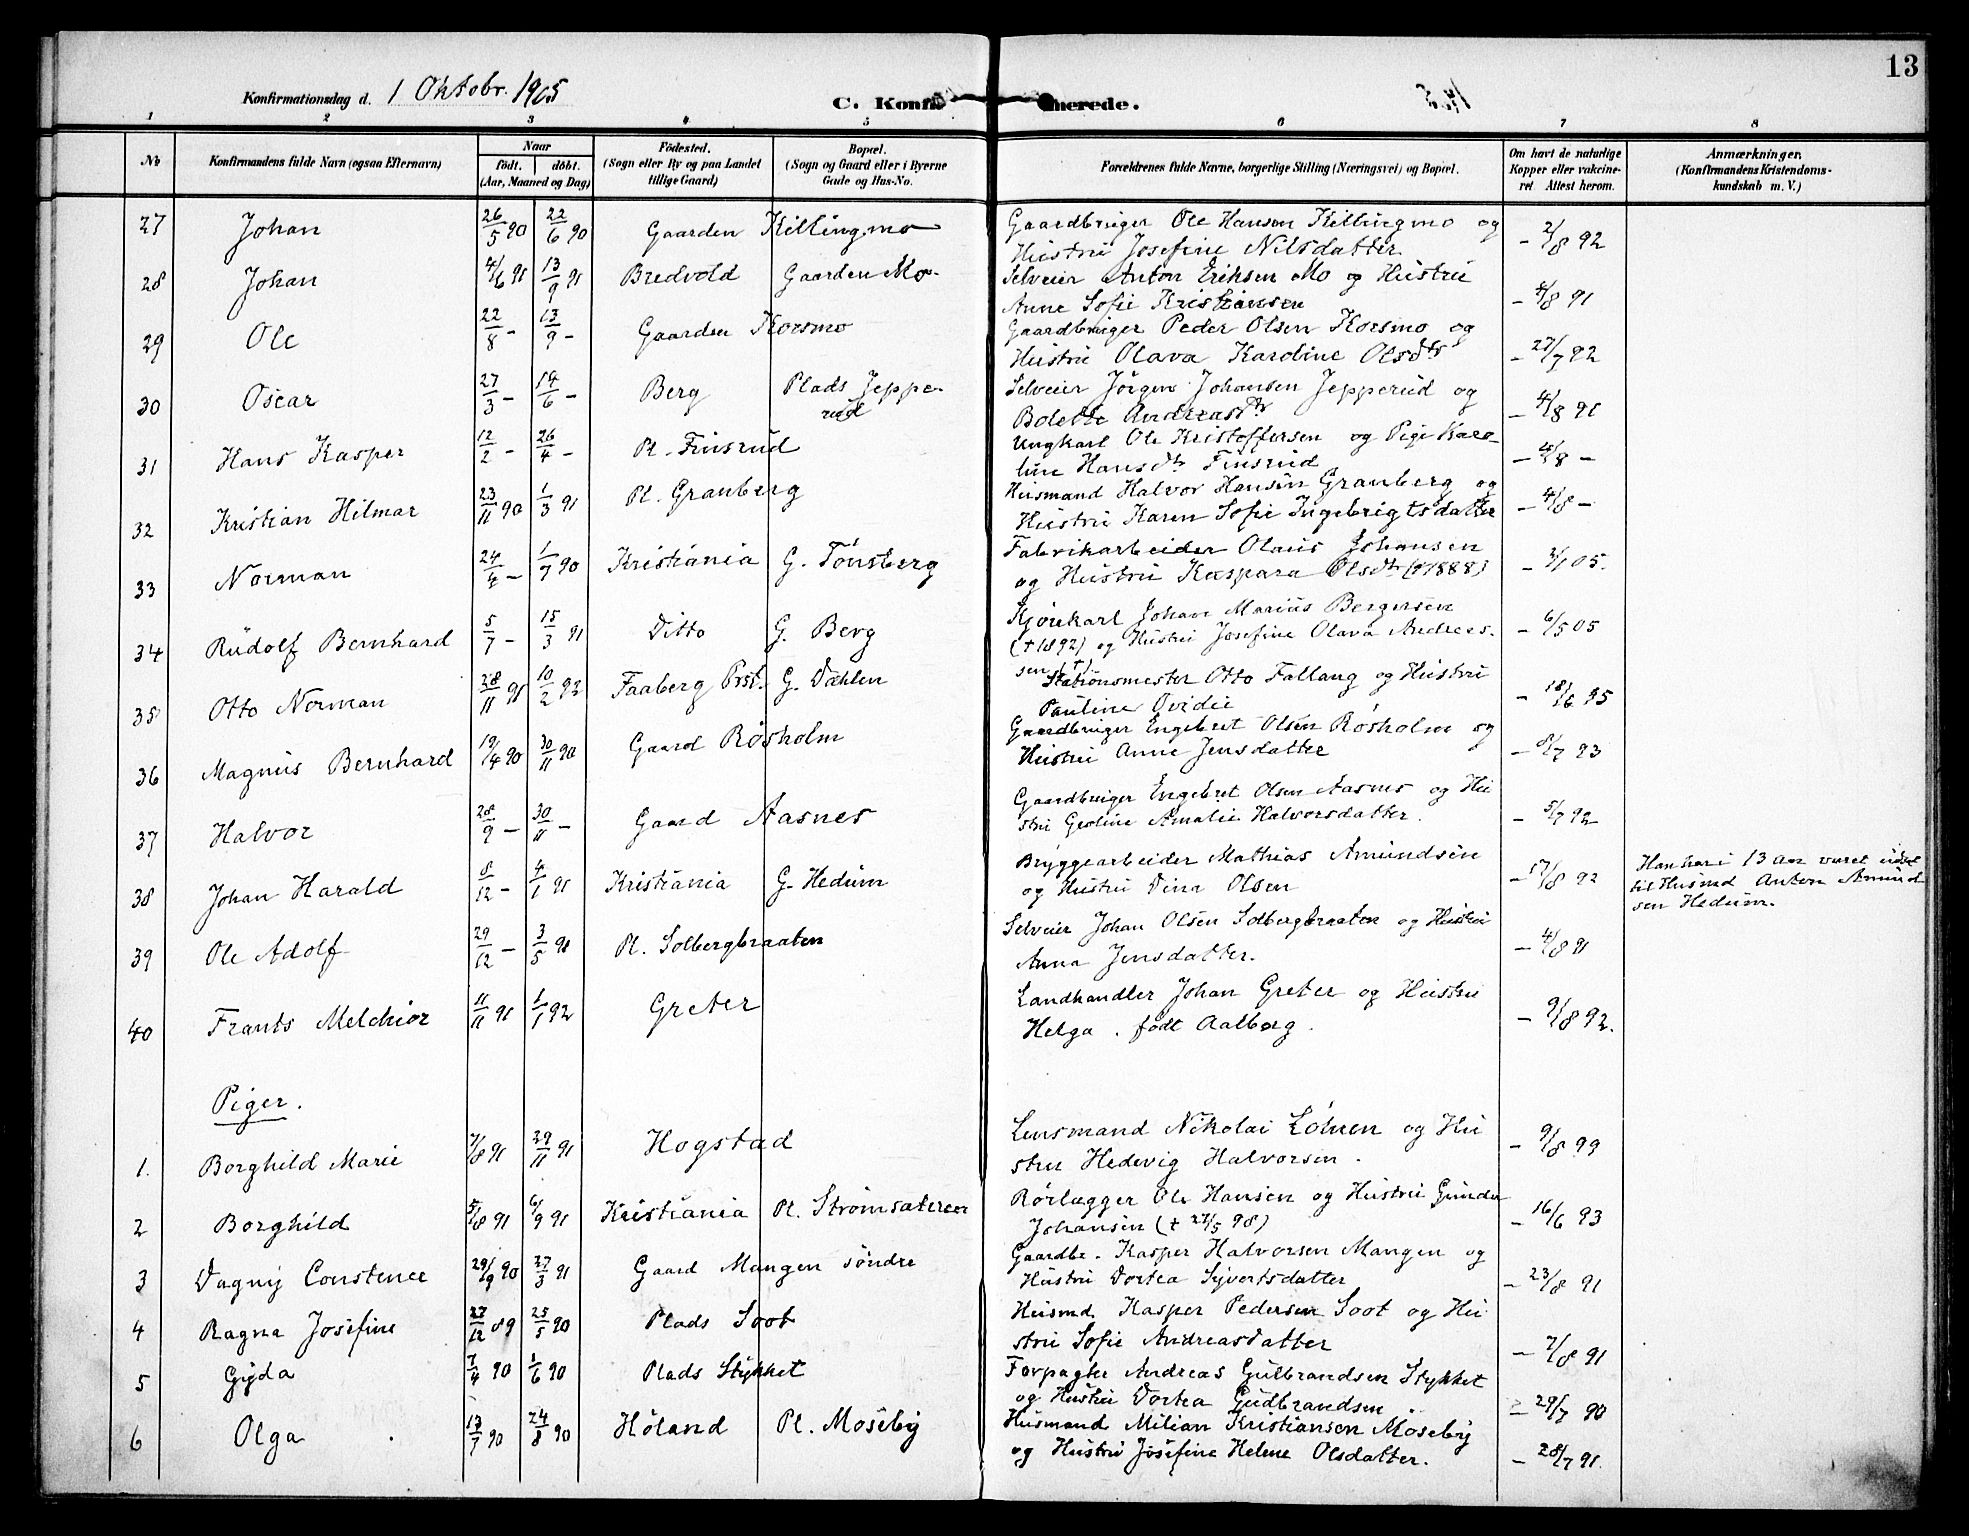 13
Konfirmationsdag d. 1 Oktobr. 1905
C. Konfirmerede.
1 2 3 4 5 6 7 8
No
Konfirmandens fulde Navn (ogsaa Efternavn)
Naar
födt. döbt.
(Aar, Maaned og Dag)
Födested.
(Sogn eller By og paa Landet
tillige Gaard)
Bopæl.
(Sogn og Gaard eller i Byerne
Gade og Hus-No.
Forældrenes fulde Navne, borgerlige Stilling (Næringsvei) og Bopæl.
Om havt de naturlige
Kopper eller vakcine-
ret Attest herom.
Anmærkninger.
(Konfirmandens Kristendoms-
kundskab m. V.)
27 Johan 26/5 90 22/6 90 Gaarden Killingmo Gaardbruger Ole Hansen Killingmo og
Hustru Josefine Nilsdatter – 2/8 92
28 Johan 4/6 91 13/9 91 Bredvold Gaarden Mo. Selveier Anton Eriksen Mo og Hustru
Anne Sofie Kristiansen – 4/8 91
29 Ole 22/8 – 13/9 – Gaarden Korsmo Gaardbruger Peder Olsen Korsmo og
Hustru Olava Karoline Olsdtr – 27/7 92
30 Oscar 27/3 – 14/6 – Berg Plads Jeppe-
rud Selveier Jörgen Johansen Jepperud og
Bolette Andreasdtr – 4/8 91
31 Hans Kasper 12/2 – 26/4 – Pl. Finsrud Ungkarl Ole Kristoffersen og Pige Karo-
line Hansdtr Finsrud – 4/8 –
32 Kristian Hilmar 23/11 90 1/3 91 Pl. Granberg Husmand Halvor Hansen Granberg og
Hustru Karen Sofie Ingebrigtsdatter – 4/8 –
33 Norman 24/4 – 1/7 90 Kristiania G. Tönsberg Fabrikarbeider Olaus Johansen
og Hustru Kaspara Olsdtr (†1888) – 3/1 05.
34 Rudolf Bernhard 5/7 – 15/3 91 Ditto G. Berg Kjörekarl Johan Marius Bergersen
(†1892) og Hustru Josefine Olava Andrees-
sen (†) – 6/5 05
35 Otto Norman 28/11 91 10/2 92 Faaberg Prst. G. Dæhlen Stationsmester Otto Fallang og Hustru
Pauline Ovidie – 18/6 95
36 Magnus Bernhard 19/4 90 30/11 90 Gaard Rösholm Gaardbruger Engebret Olsen Rösholm og
Hustru Anne Jensdatter – 8/7 93
37 Halvor 28/9 – 30/11 – Gaard Aasnes Gaardbruger Engebret Olsen Aasnes og Hu
stru Geoline Amalie Halvorsdatter. – 5/7 92
38 Johan Harald 8/12 – 4/1 91 Kristiania G. Hedum Bryggearbeider Mathias Amundsen
og Hustru Dina Olsen – 17/8 92 Han har i 13 Aar været udsat
til Husmd Anton Amund
sen Hedum.
39 Ole Adolf 29/12 – 3/5 91 Pl. Solbergbraaten Selveier Johan Olsen Solbergbraaten og Hustru
Anna Jensdatter. – 4/8 91
40 Frants Melchior 11/11 91 1/1 92 Greter Landhandler Johan Greter og Hustru
Helga. födt Aalborg. – 9/8 92.
Piger.
1. Borghild Marie 7/8 91 29/11 91 Hogstad Lensmand Nikolai Löhren og Hu
stru Hedevig Halvorsen. – 9/8 99
2 Borghild 5/8 91 6/9 91 Kristiania Pl. Strömsætereier Rörlægger Ole Hansen og Hustru Gunda
Johansen († 27/5 98) – 16/6 93
3 Dagny Constence 29/9 90 27/3 91 Gaard Mangen söndre Gaardbr. Kasper Halvorsen Mangen og
Hustru Dortea Syvertsdatter – 23/8 91
4 Ragna Josefine 27/12 89 25/5 90 Plads Soot Husmd. Kasper Pedersen Soot og Hu-
stru Sofie Andreasdatter – 7/8 91
5 Gyda 7/4 90 1/6 90 Plads Stykket Forpagter Andreas Gulbrandsen Stykket
og Hustru Dortea Gudbrandsen – 29/7 90
6 Olga 13/7 90 24/8 90 Höland Pl. Moseby Husmand Milian Kristiansen Moseby
og Hustru Josefine Helene Olsdatter. – 28/7 91.